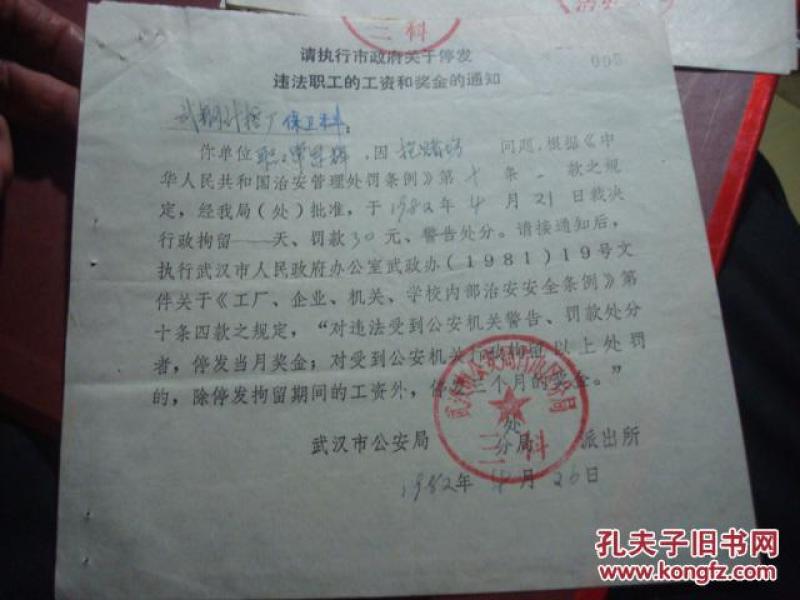 三科
请执行市政府关于停发
005
违法职工的工资和奖金的通知
武钢 厂保卫科：
你单位职工 ，因 赌 问题，根据《中
华人民共和国治安管理处罚条例》第十条 款之规
定，经我局（处）批准，于1982年4月21日裁决
行政拘留——天、罚款30元、警告处分。请接通知后，
执行武汉市人民政府办公室武政办（1981）19号文
件关于《工厂、企业、机关、学校内部治安安全条例》第
十条四款之规定，“对违法受到公安机关警告、罚款处分
者，停发当月奖金；对受到公安机关行政拘留以上处罚
的，除停发拘留期间的工资外，停发三个月的奖金。”
武汉市公安局 处 分局 派出所
武汉市公安局 分局
三科
1982年4月26日
孔夫子旧书网
kongfz.com